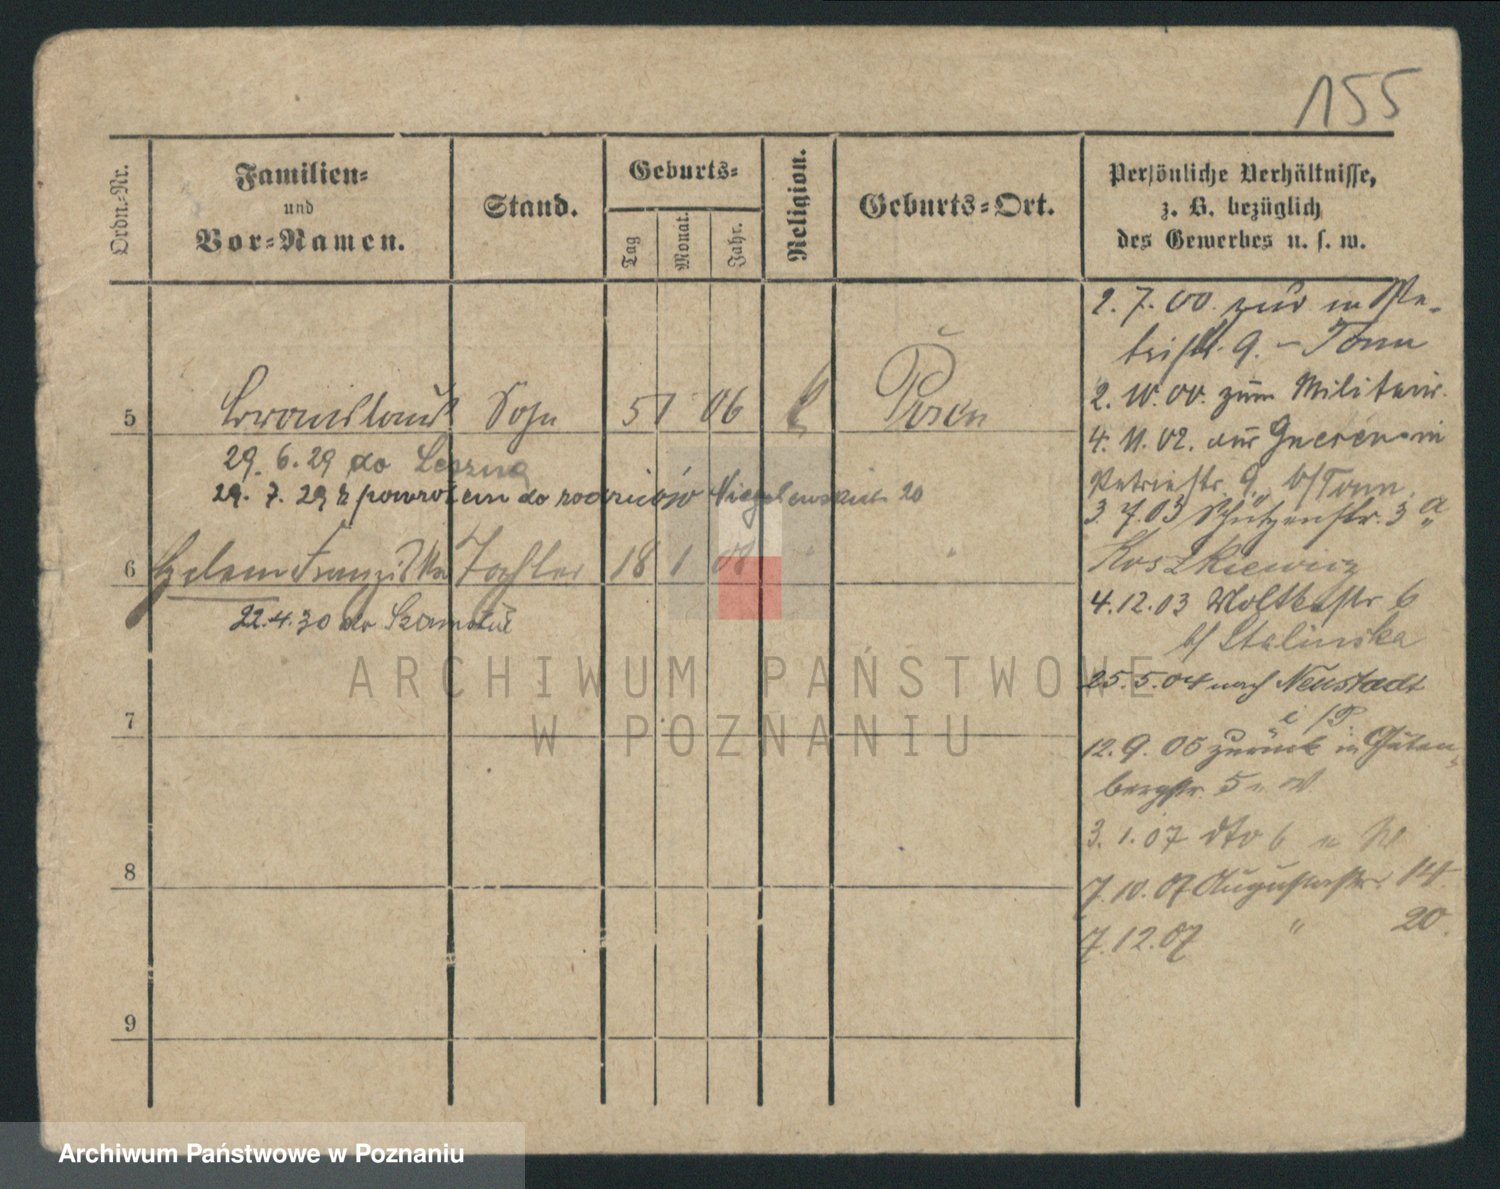 155
Ordn.-Nr.
Familien-
und
Vor-Namen.
Stand.
Geburts-
Tag
Monat.
Jahr.
Religion.
Geburts-Ort.
Persönliche Verhältnisse,
z. B. bezüglich
des Gewerbes u. s. w.
5 Bronislaus Sohn 5 1 06 Posen
29. 6. 29 do Leszna
29. 7. 29 z powrotem do rodziców Niegolewskich 20
6 Helene Franziska Tochter 18 1 08 "
22.4.30 do Szamotuł
7
8
9
2. 7. 00. zur in Pe-
tristr. 9. - Tonn
2. 10. 00. zum Militair.
4. 11. 02. aus Gnesen in
Petristr. 9. b/Tonn.
3. 7. 03 Schützenstr. 3a
Koszkiewicz
4. 12. 03 Moltkestr 6
b/ Stalinska
25. 5. 04 nach Neustadt
12. 9. 05 zurück in Guten-
bergstr. 5 W
3. 1. 07 dto 6 W
7. 10. 07 Augustastr. 14.
7. 12. 07 " 20.
ARCHIWUM PAŃSTWOWE
W POZNANIU
Archiwum Państwowe w Poznaniu